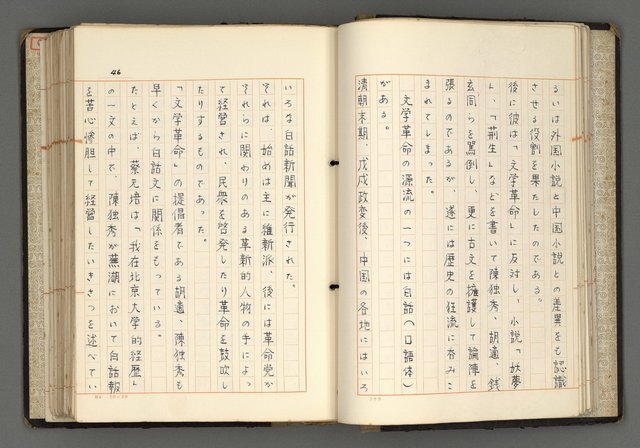 るいは外国小説と中国小説との差異をも認識
させる役割を果たしたのである。
後に彼は「文学革命」に反対し、小説「妖夢
」、「荊生」などを書いて陳独秀、胡適、銭
玄同らを罵倒し、更に古文を擁護して論陣を
張るのであるが、遂には歴史の狂流に呑みこ
まれてしまった。
文学革命の源流の一つには白話（口語体）
がある。
清朝末期、戊戌政変後、中国の各地にはいろ
46
いろな白話新聞が発行された。
それは、始めは主に維新派、後には革命党か
それらに関わりのある革新的人物の手によっ
て経営され、民衆を啓発したり革命を鼓吹し
たりするものであった。
「文学革命」の提倡者である胡適、陳独秀も
早くから白話文に関係をもっている。
たとえば、蔡元培は「我在北京大学的経歴」
の一文の中で、陳独秀が蕪湖において白話報
を苦心惨胆して経営したいきさつを述べてい